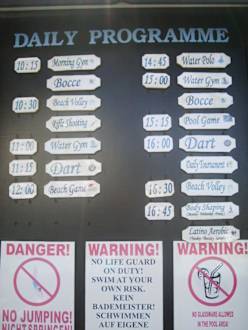 DAILY PROGRAMME
10:15 Morning Gym
Bocce
10:30 Beach Volley
Rifle Shooting
11:00 Water Gym
11:15 Dart
12:00 Beach Game
14:45 Water Polo
15:00 Water Gym
Bocce
15:15 Pool Game
16:00 Dart
Daily Tournament
16:30 Beach Volley
16:45 Body Shaping
Latino Aerobic
DANGER!
NO JUMPING!
NICHT SPRINGEN!
WARNING!
NO LIFE GUARD
ON DUTY!
SWIM AT YOUR
OWN RISK.
KEIN
BADEMEISTER!
SCHWIMMEN
AUF EIGENE
WARNING!
NO GLASSWARE ALLOWED
IN THE POOL AREA